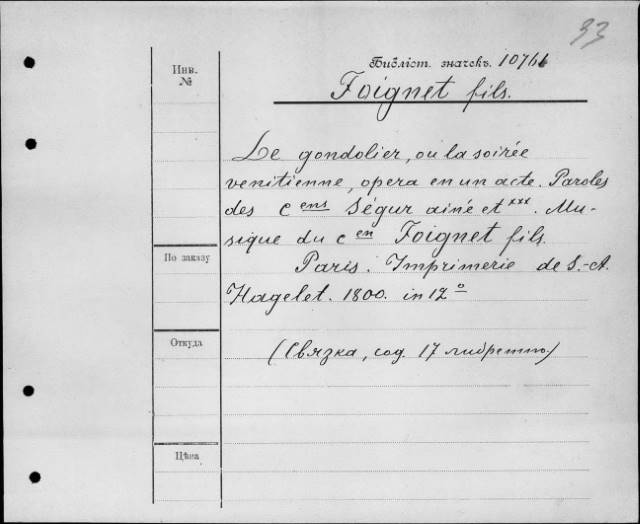 33
Библіот. значекъ. 10766
Инв.
№
Foignet fils.
Le gondolier, ou la soirée
venitienne, opera en un acte. Paroles
des c ens Ségur ainé et xxx. Mu-
sique du c en Foignet fils.
По заказу
Paris. Imprimerie de S.-A.
Hagelet. 1800. in 12°
Откуда
(Связка, сод. 17 либретто)
Цѣна